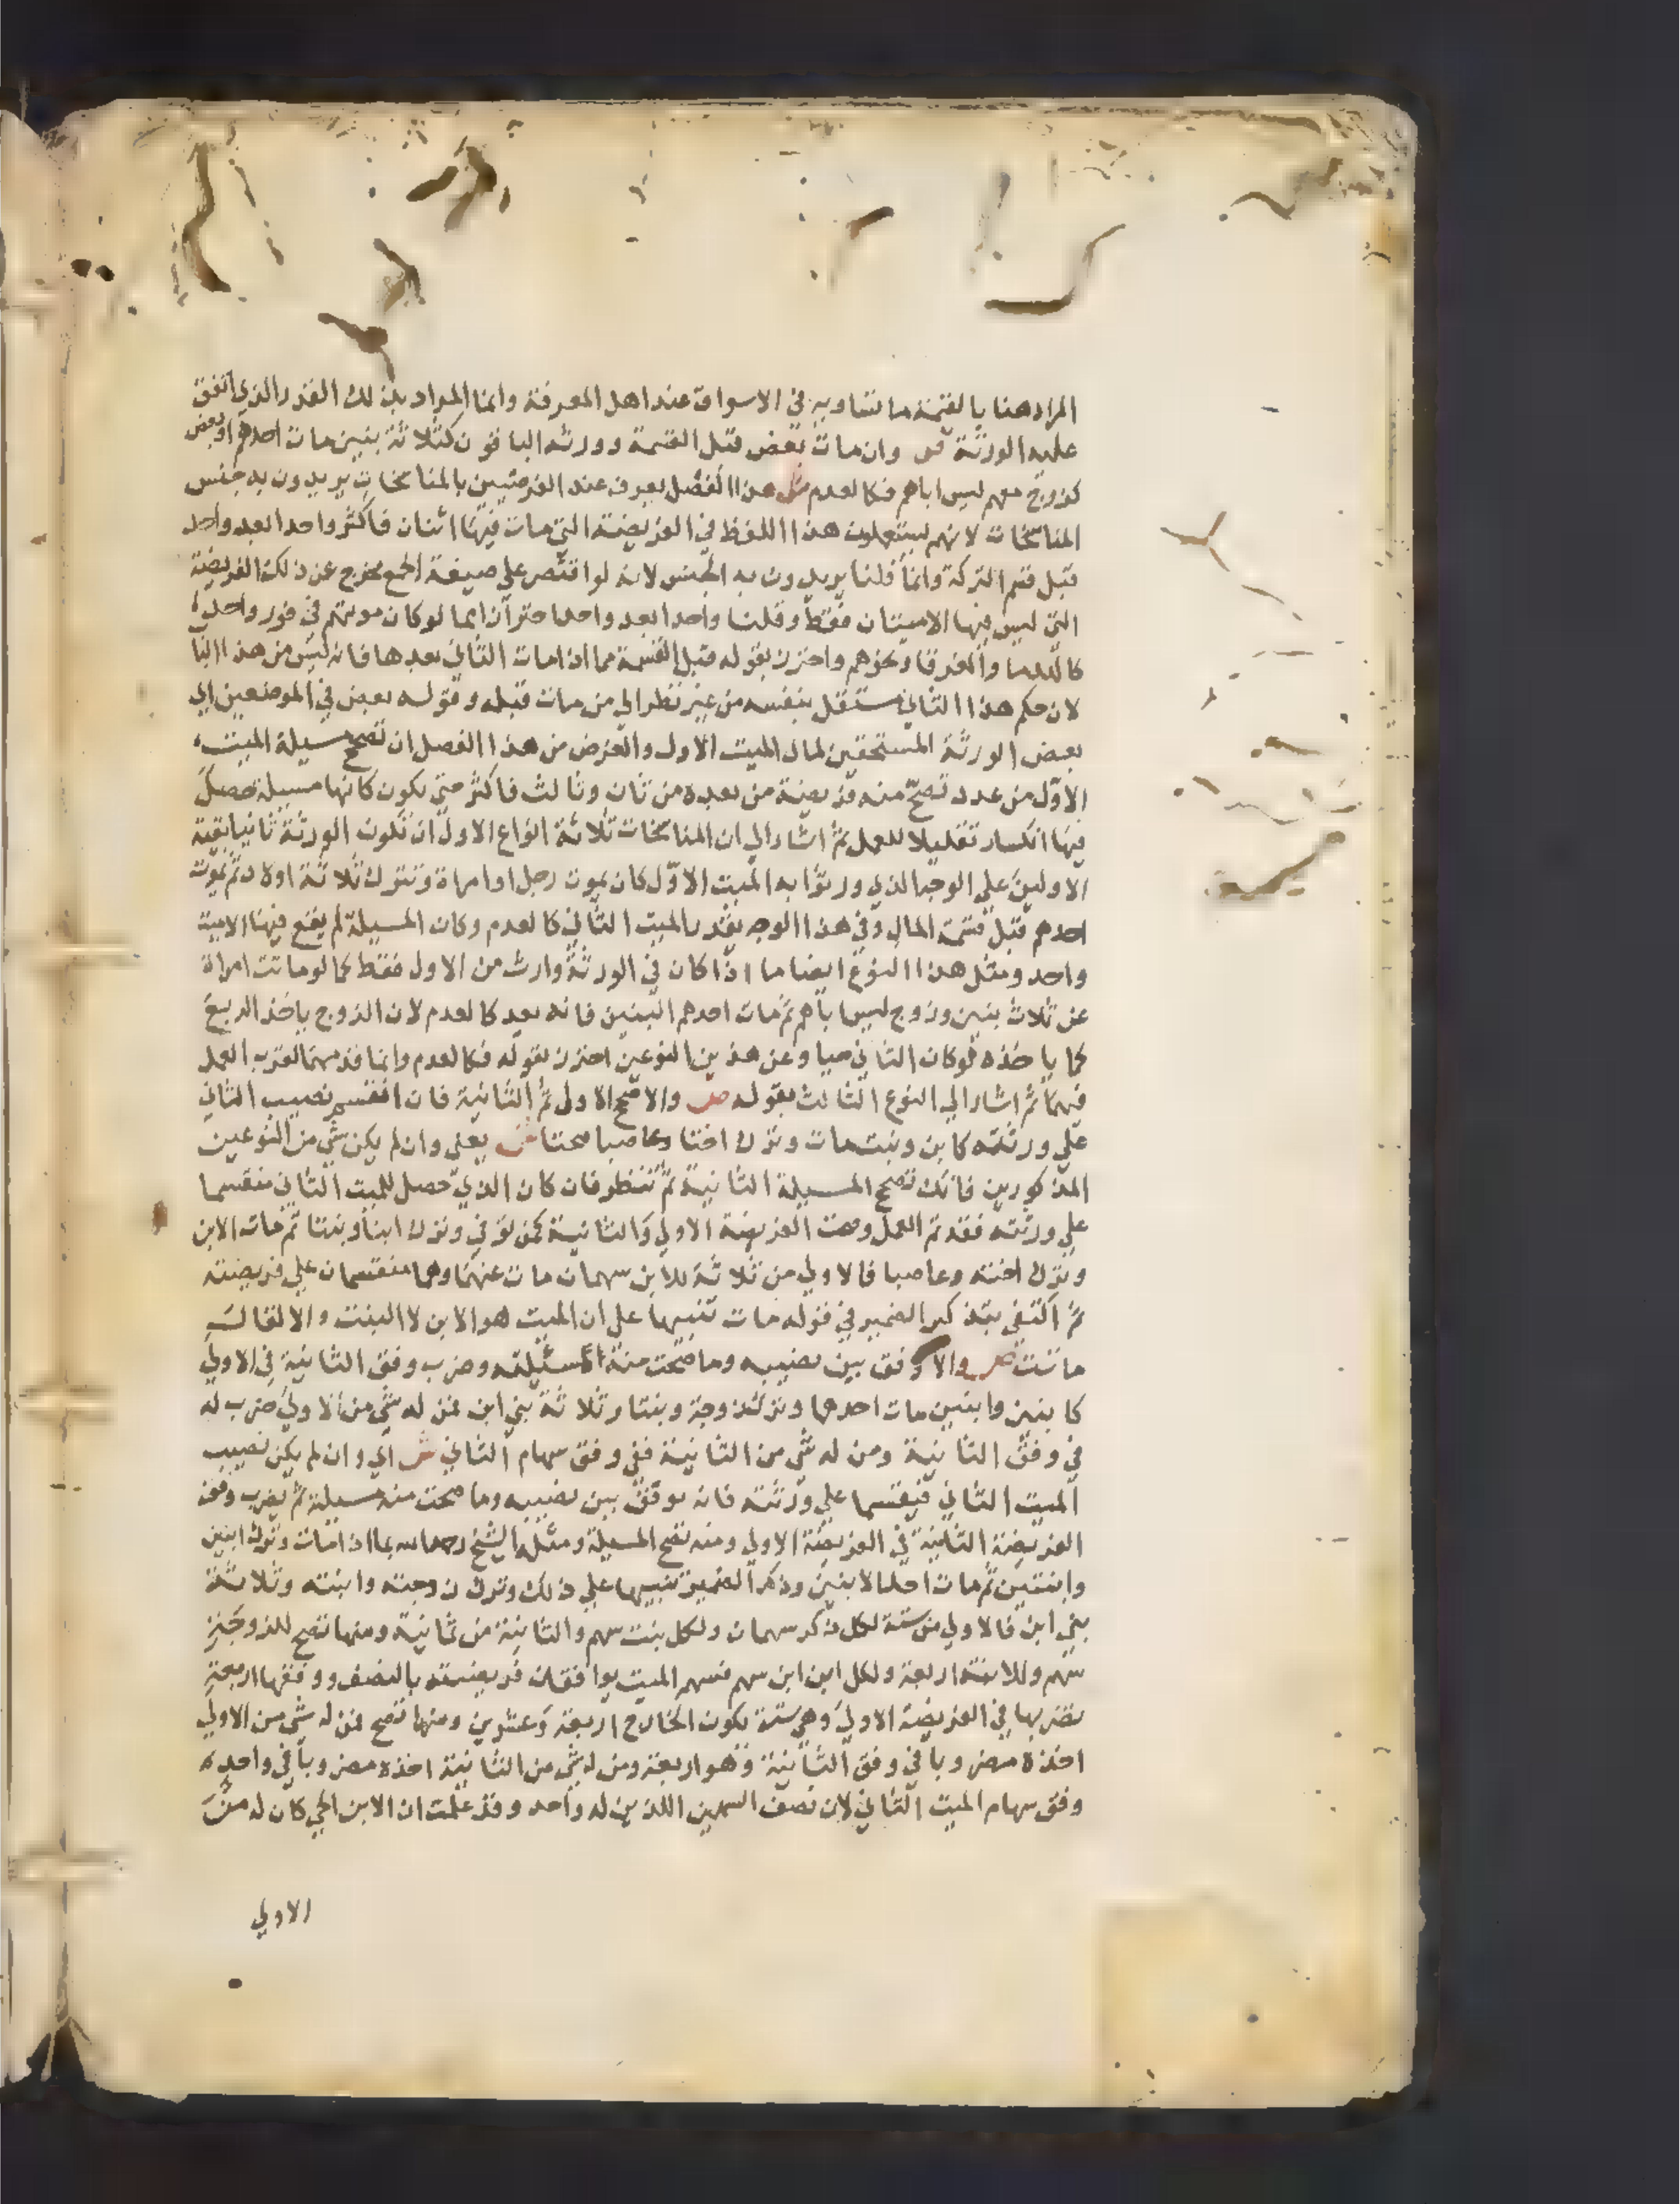 المراد هنا بالقيمة ما تساويه في الاسواق عند اهل المعرفة وانما المراد بذلك القدر الذي اتفق
عليه الورثة ص وان مات بعض قبل القسمة وورثه الباقون كثلاثة بنين مات احدهم او بعض
كزوج معهم ليس اباهم فكالعدم ش هذا الفصل يعرف عند الفرضيين بالمناسخات يريدون به جنس
المناسخات لانهم يستعملون هذا اللفظ في الفريضة التي مات فيها اثنان فاكثر واحدا بعد واحد
قبل قسم التركة وانما قلنا يريدون به الجنس لانه لو اقتصر علي صيغة الجمع لخرج عن ذلك الفريضة
التي ليس فيها الا ميتان فقط وقلنا واحدا بعد واحد احترازا مما لو كان موتهم في فور واحد
كالهدما والغرقا ونحوهم واحترز بقوله قبل القسمة مما اذا مات الثاني بعدها فانه ليس من هذا البا
لان حكم هذا الثاني مستقل بنفسه من غير نظر الي من مات قبله وقوله بعض في الموضعين اي
بعض الورثة المستحقين لمال الميت الاول والغرض من هذا الفصل ان تصح مسيلة الميت
الاول من عدد تصح منه فريضة من بعده من ثان وثالث فاكثر حتي يكون كانها مسيلة حصل
فيها انكسار تقليلا للعمل ثم اشار الي ان المناسخات ثلاثة انواع الاول ان تكون الورثة ثانيا بقية
الاولين علي الوجه الذي ورثوا به الميت الاول كان يموت رجل او امراة وتترك ثلاثة اولاد ثم يموت
احدهم قبل قسمة المال وفي هذا الوجه يقدر الميت الثاني كالعدم وكان المسيلة لم يقع فيها الا ميت
واحد ومثل هذا النوع ايضا ما اذا كان في الورثة وارث من الاول فقط كما لو ماتت امراة
عن ثلاث بنين وزوج ليس باهم ثم مات احدهم البنين فانه يعد كالعدم لان الزوج ياخذ الربع
كما ياخذه لو كان الثاني حيا وعن هذين النوعين احترز بقوله فكالعدم وانما قدمهما لقرب العمل
فيهما ثم اشار الي النوع الثالث بقوله ص والا صح الاولي ثم الثانية فان انقسم نصيب الثاني
علي ورثته كابن وبنت مات وترك اختا وعاصبا صحتا ش يعني وان لم يكن شي من النوعين
المذكورين فانك تصح المسيلة الثانية ثم تنظر فان كان الذي حصل للميت الثاني منقسما
علي ورثته فقد تم العمل وصحت الفريضة الاولي والثانية كمن توفي وترك ابنا وبنتا ثم مات الابن
وترك اخته وعاصبا فالاولي من ثلاثة للابن سهمان مات عنهما وهما منقسمان علي فريضته
ثم اكتفي بتذكير الضمير في قوله مات تنبيها علي ان الميت هو الابن لا البنت والا لقال
ماتت ص والا وفق بين نصيبه وما صحت منه مسئلته وضرب وفق الثانية في الاولي
كابنين وابنتين مات احدهما وترك زوجة وبنتا وثلاثة بني ابن فمن له شي من الاولي ضرب له
في وفق الثانية ومن له شي من الثانية ففي وفق سهام الثاني ش اي وان لم يكن نصيب
الميت الثاني منقسما علي ورثته فانه يوفق بين نصيبه وما صحت منه مسيلته ثم يضرب وفق
الفريضة الثانية في الفريضة الاولي ومنه تصح المسيلة ومثله الشيخ رحمه الله بما اذا مات وترك ابنين
وابنتين ثم مات احد الابنين وذكر الضمير تنبيها علي ذلك وترك زوجته وابنته وثلاثة
بني ابن فالاولي من ستة لكل ذكر سهمان ولكل بنت سهم والثانية من ثمانية ومنها تصح للزوجة
سهم وللابنة اربعة ولكل ابن ابن سهم فسهم الميت يوافقان فريضته بالنصف ووفقها اربعة
تضربها في الفريضة الاولي وهي ستة يكون الخارج اربعة وعشرين ومنها تصح فمن له شي من الاولي
اخذه مضروبا في وفق الثانية وهو اربعة ومن له شي من الثانية اخذه مضروبا في واحد
وفق سهام الميت الثاني لان نصف السهمين اللذين له واحد وقد علمت ان الابن الحي كان له من
الاولي